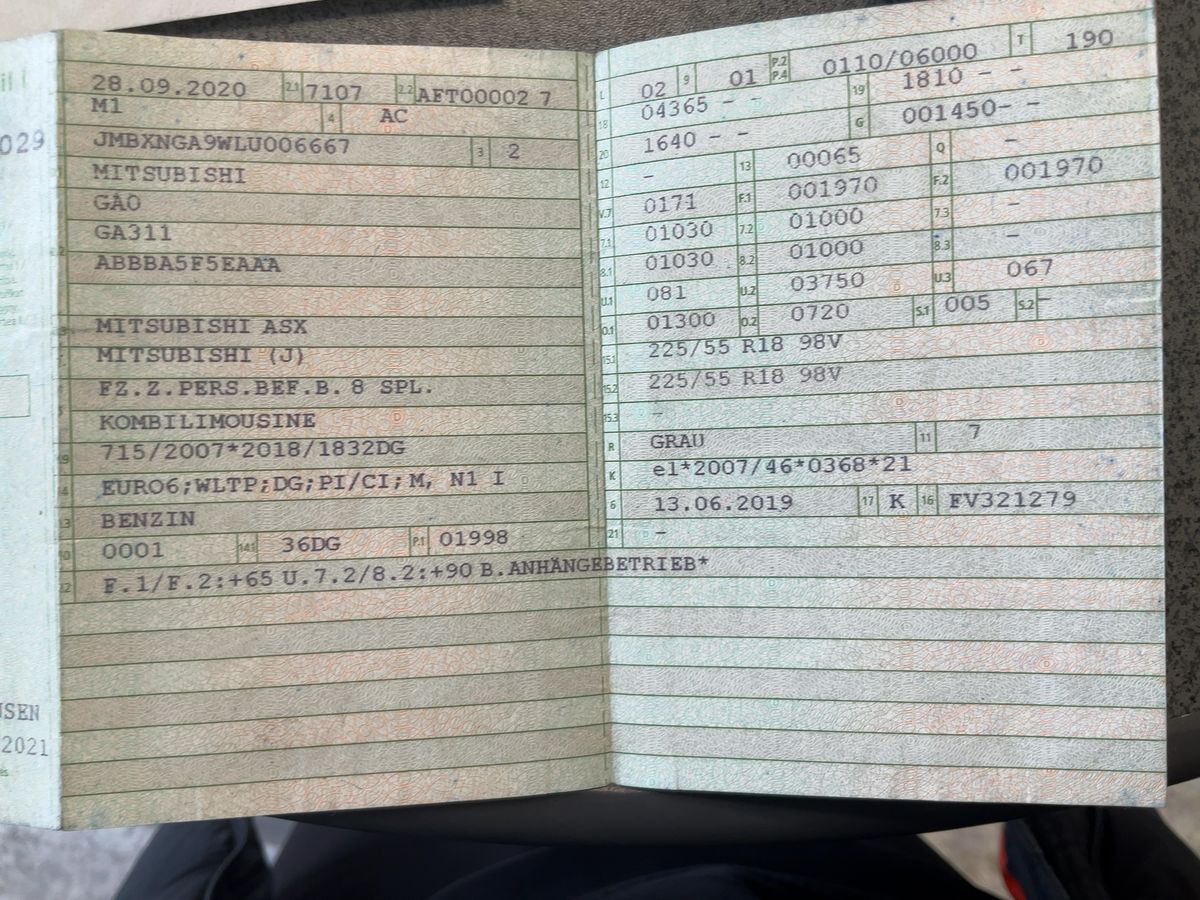 28.09.2020 2.1 7107 2.2 AFT00002 7
M1 4 AC
029
JMBXNGA9WLU006667 3 2
MITSUBISHI
GA0
GA311
ABBBA5F5EAAA
MITSUBISHI ASX
MITSUBISHI (J)
FZ.Z.PERS.BEF.B. 8 SPL.
KOMBILIMOUSINE
715/2007*2018/1832DG
14 EURO6;WLTP;DG;PI/CI; M, N1 I
BENZIN
10 0001 14.1 36DG P.1 01998
22 F.1/F.2:+65 U.7.2/8.2:+90 B.ANHÄNGEBETRIEB*
USEN
2021
L 02 9 01 P.2 P.4 0110/06000 T 190
18 04365 - - 19 1810 - -
20 1640 - - G 001450- -
12 - 13 00065 Q -
V.7 0171 F.1 001970 F.2 001970
7.1 01030 7.2 01000 7.3 -
8.1 01030 8.2 01000 8.3 -
U.1 081 U.2 03750 U.3 067
O.1 01300 O.2 0720 S.1 005 S.2 -
15.1 225/55 R18 98V
15.2 225/55 R18 98V
15.3 -
R GRAU 11 7
K e1*2007/46*0368*21
6 13.06.2019 17 K 16 FV321279
21 -